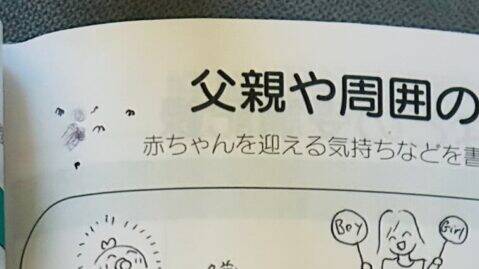 父親や周囲の
赤ちゃんを迎える気持ちなどを書
Boy
Girl